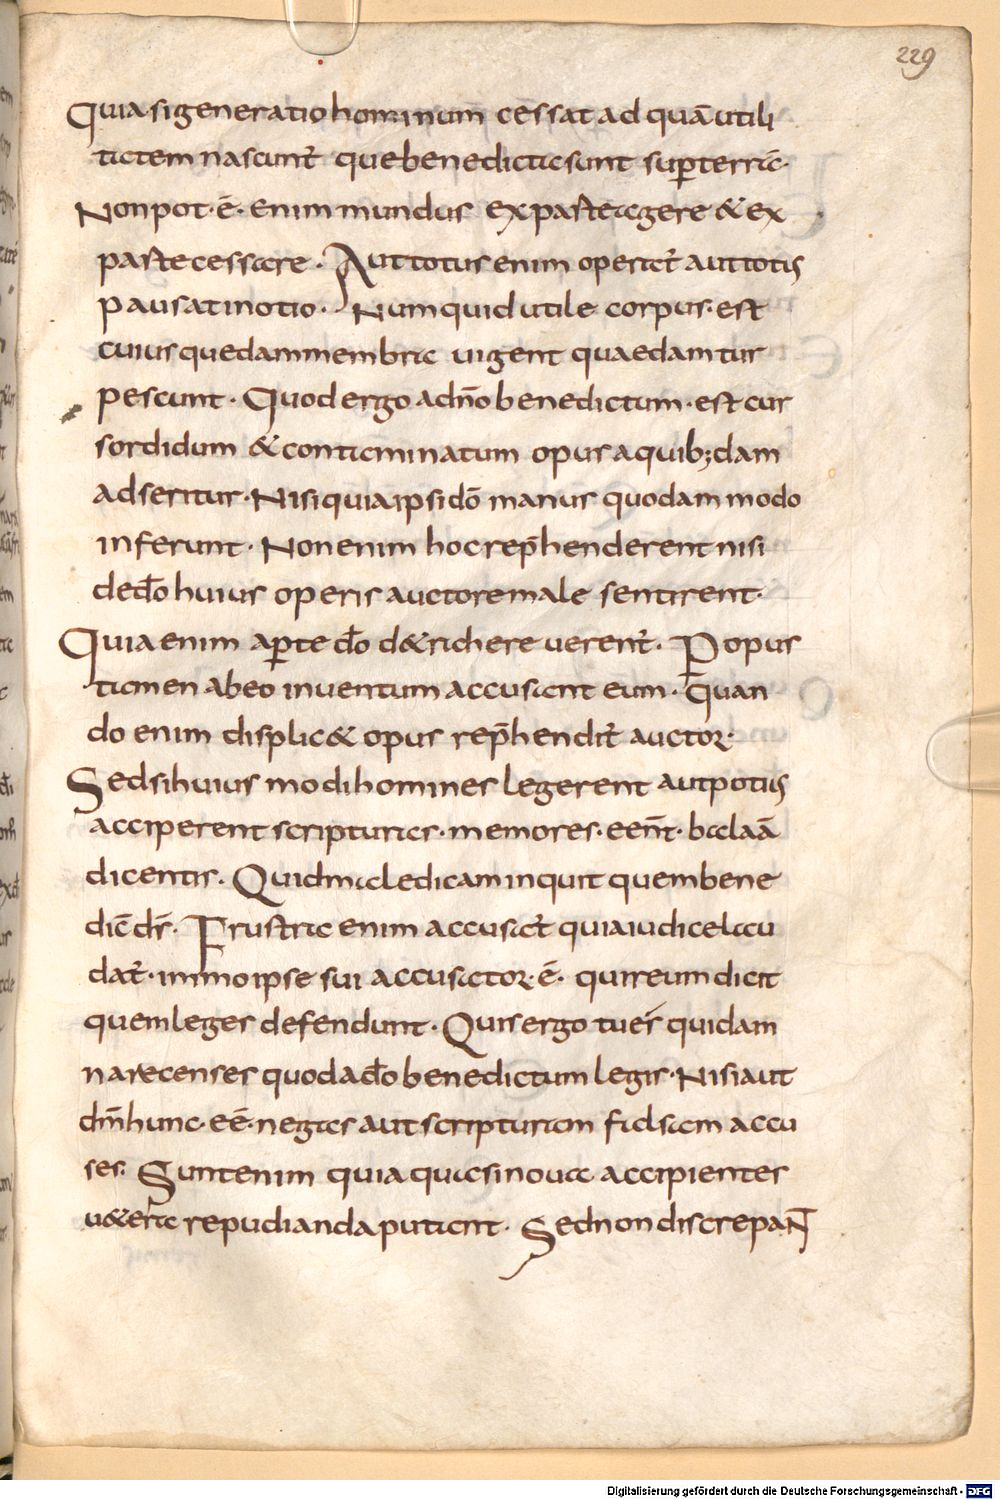 229
Quia si generatio hominum cessat ad quā utili
tatem nascunt̄ que benedicta sunt sup̄ terra.
Non pot·ē· enim mundus ex parte agere & ex
parte cessare. Aut totus enim operat̄ aut totus
pausat in otio. Numquid utile corpus·est
cuius quedam membra uigent quaedam tur
pescunt. Quod ergo ad n̄o benedictum·est cur
sordidum & contaminatum opus a quib;dam
adseritur. Nisi quia ipsi dō manus quodam modo
inferunt. Non enim hoc rep̄henderent nisi
de d̄o huius operis auctore male sentirent.
Quia enim ap̄te d̄o d&richere uerent̄. P opus
tamen ab eo inuentum accusant eum. Quan
do enim displic& opus rep̄hendit̄ auctor.
Sed si huius modi homines legerent aut potius
acciperent scripturas·memores·eēnt·balaā
dicentis. Quid maledicam inquit quem bene
dic̄ dn̄s. Frustra enim accusat̄ qui a iudice lau
dat̄·immo ipse sui accusator·ē· qui reum dicit
quem leges defendunt. Quis ergo tu és qui dam
nare censes quod a d̄o benedictum legis. Nisi aut
dm̄ hunc·eē·negas aut scripturam fidsam accu
ses. Sunt enim quia quasi noua accipientes
u&era repudianda putant. Sed non discrepaNT
Digitalisierung gefördert durch die Deutsche Forschungsgemeinschaft · DFG